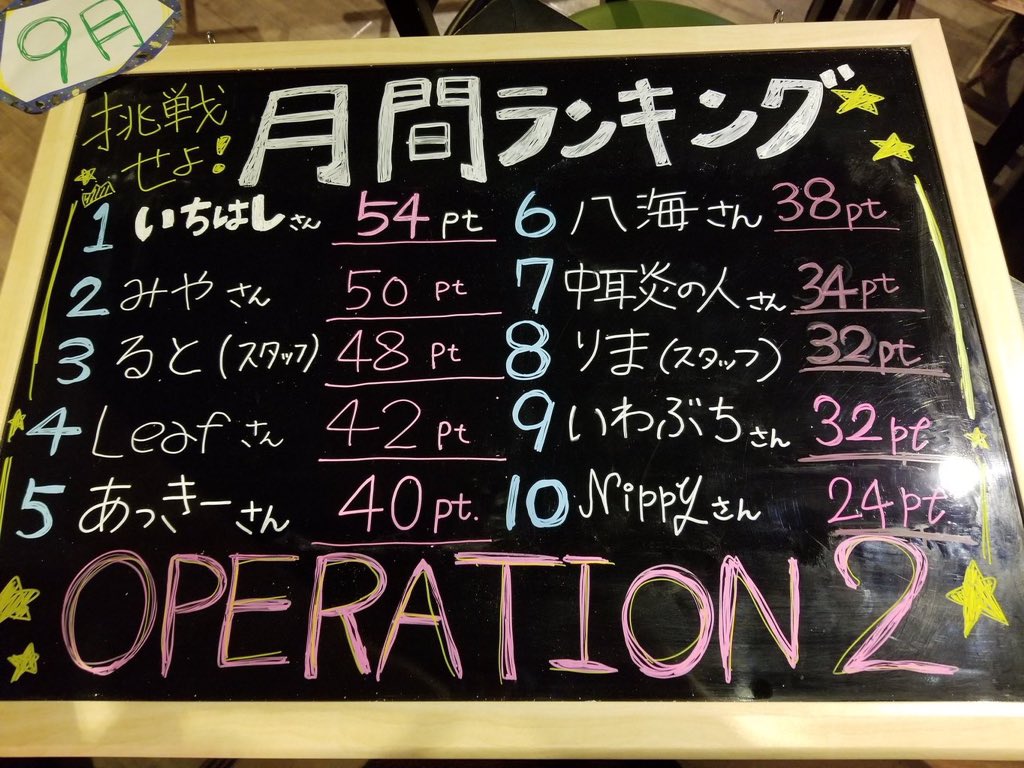 9月
挑戦せよ!
月間ランキング
1 いちはしさん 54pt
2 みやさん 50pt
3 ると(スタッフ) 48pt
4 Leafさん 42pt
5 あっきーさん 40pt.
6 八海さん 38pt
7 中耳炎の人さん 34pt
8 りま(スタッフ) 32pt
9 いわぶちさん 32pt
10 Nippyさん 24pt
OPERATION 2